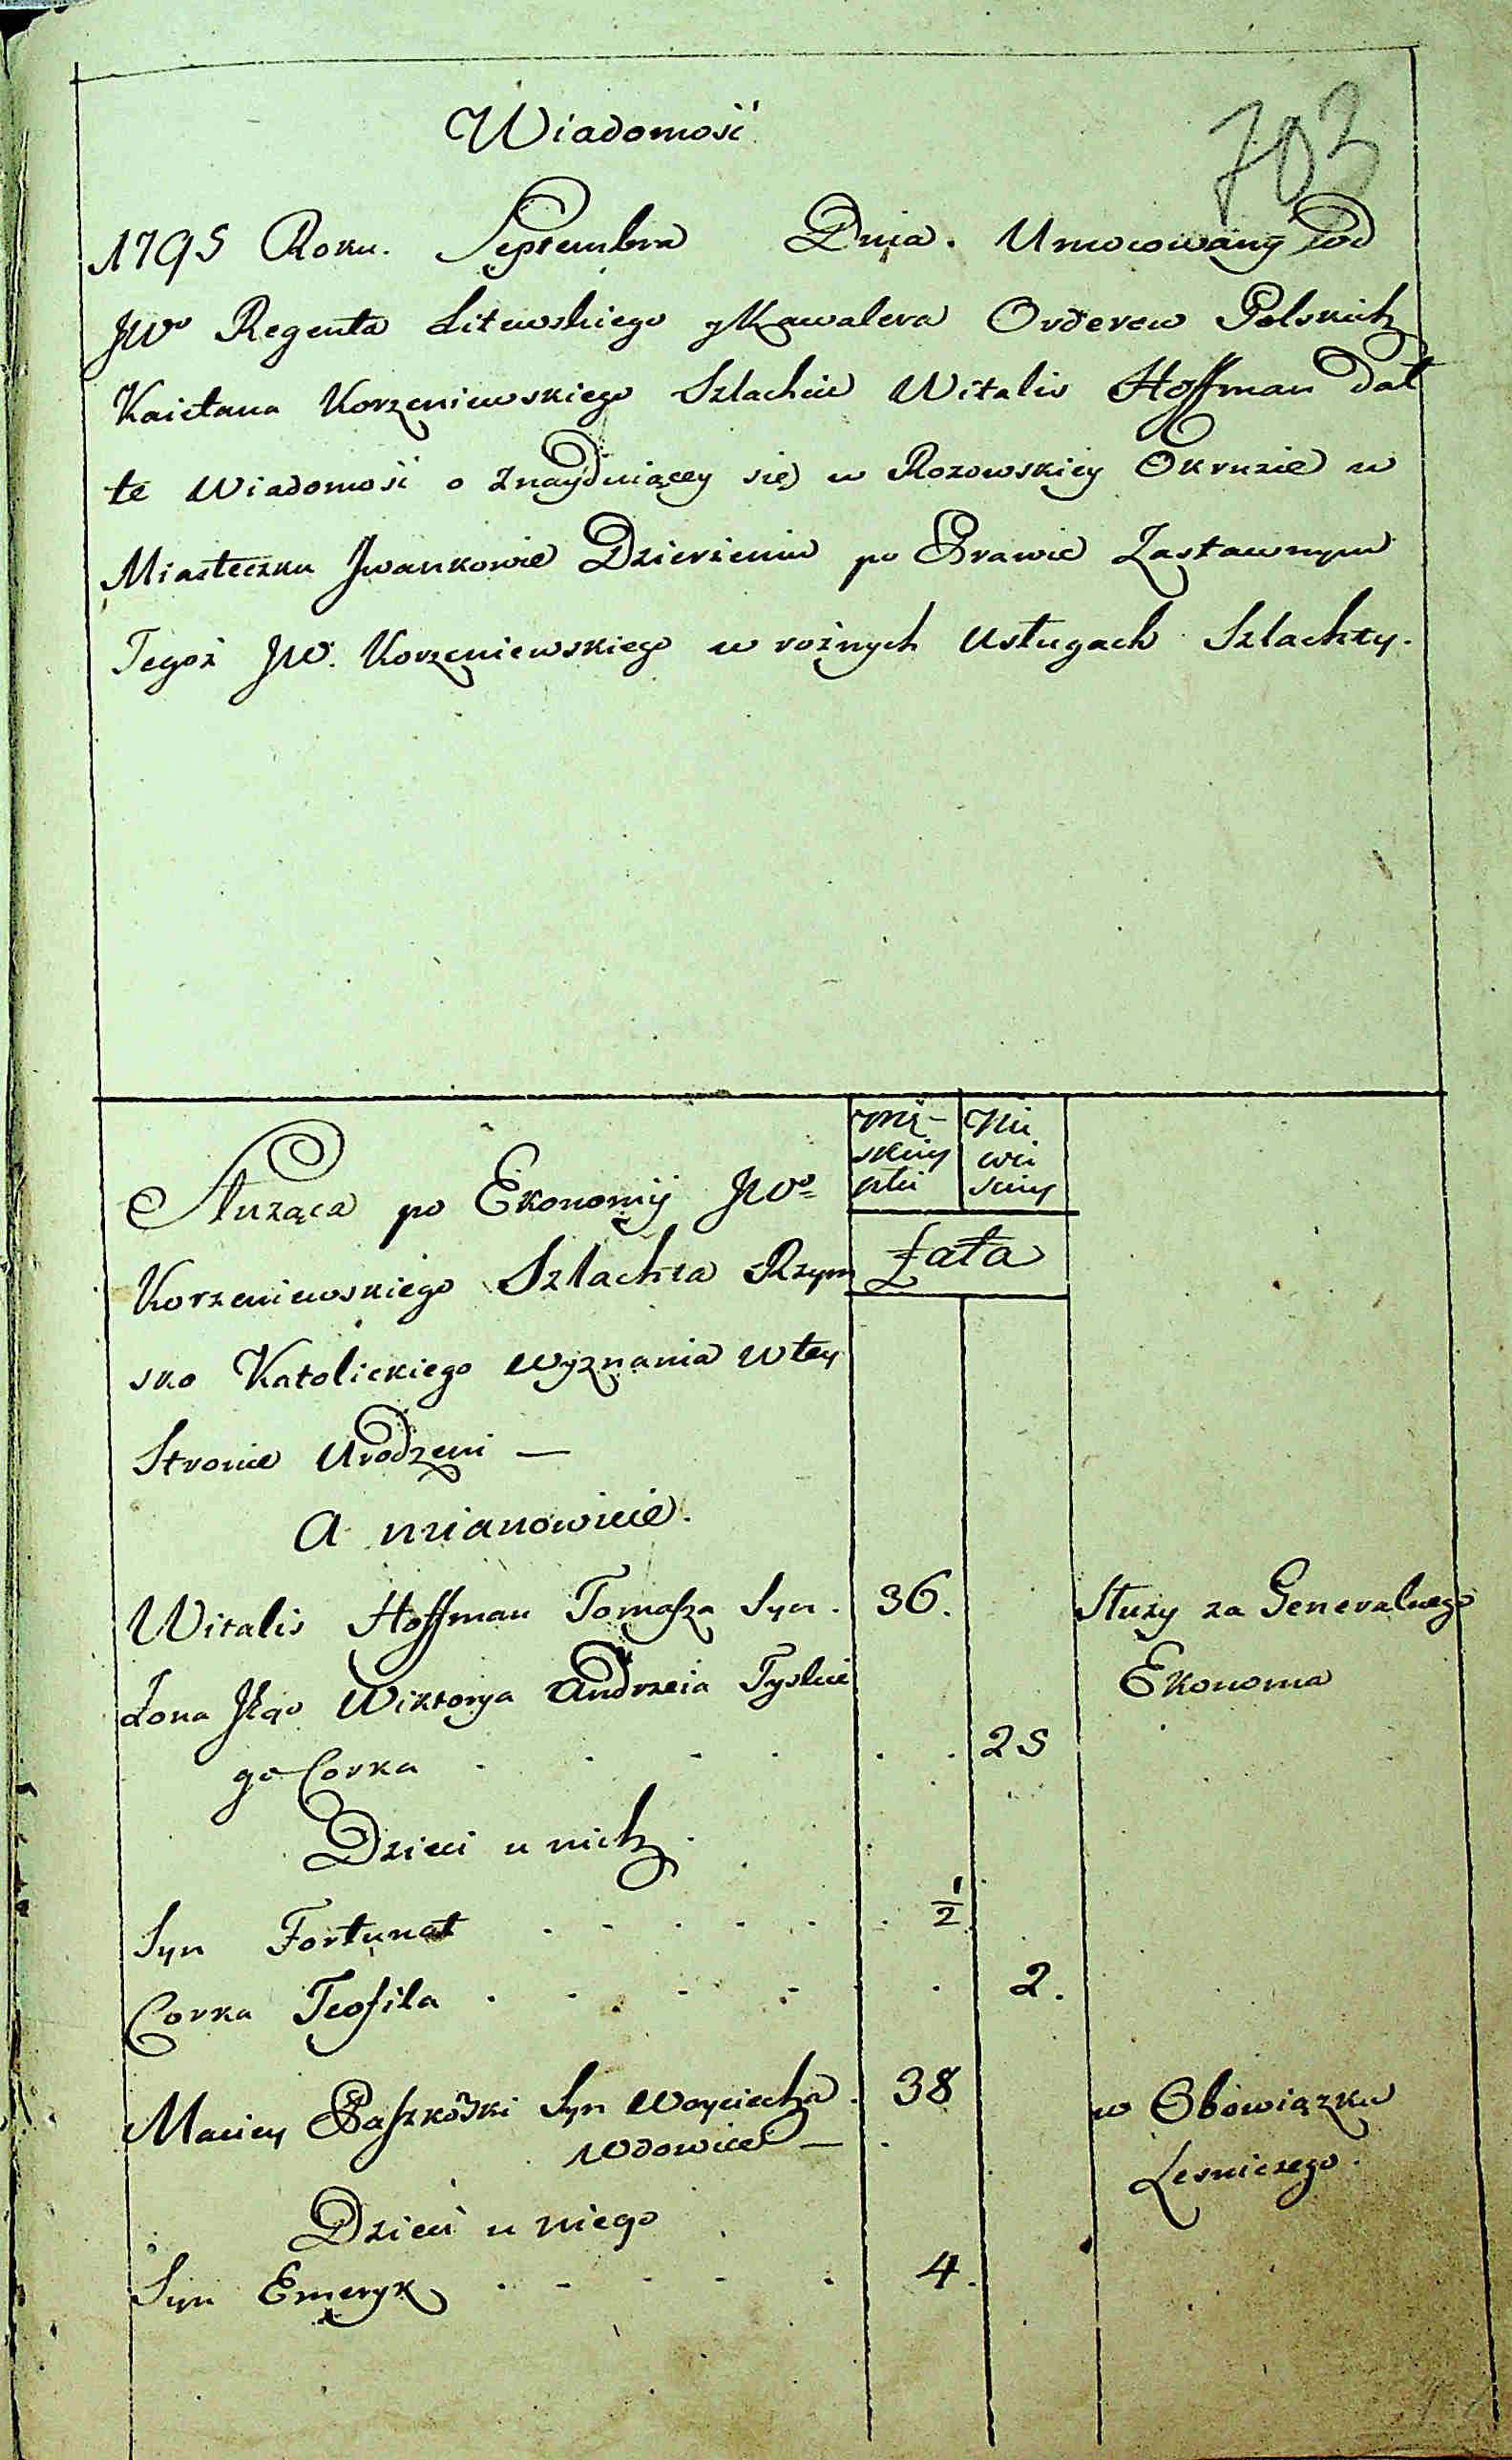 703
Wiadomość
1795 Roku. Septembra Dnia. Umocowany od
JWo Regenta Litewskiego y Kawalera Orderow Polskich
Kaietana Korzeniewskiego Szlachcic Witalis Hoffman dał
te Wiadomość o znayduiącey się w Rozowskiey Okruzie w
Miasteczku Jwankowie Dzierżeniu po Prawie Zastawnym
Tegoż JW. Korzeniewskiego w rożnych usługach Szlachty.
Służąca po Ekonomij JWo
Korzeniewskiego Szlachta Rzym
sko Katolickiego wyznania w tey
Stronie Urodzeni —
A mianowicie.
męskiey płci
Nie wie sciey
Łata
Witalis Hoffman Tomasza Syn. 36. Służy za Generalnego
Ekonoma
Żona Jego Wiktorya Andrzeia Tyskie
go Corka 25
Dzieci u nich.
Syn Fortunat 1/2
Corka Teofila 2.
Maciey Paszkowski Syn Woyciecha 38 w Obowiązku
Wdowiec — Lesniczego.
Dzieci u niego
Syn Emeryk 4.